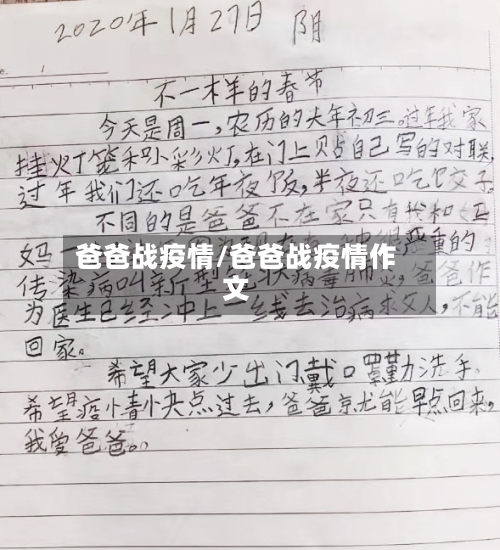 2020年1月27日 阴
不一样的春节
今天是周一,农历的大年初三。过年我家
挂灯笼和小彩灯,在门上贴自己写的对联,
过年我们还吃年夜饭,半夜还吃饺子。
不同的是爸爸不在家只有我和
妈 严重的
爸爸战疫情/爸爸战疫情作
文
传染病叫新型 状病毒肺炎,爸爸作
为医生已经冲上一线去治病救人,不能
回家。
希望大家少出门戴口罩勤洗手,
希望疫情快点过去,爸爸就能早点回来,
我爱爸爸。